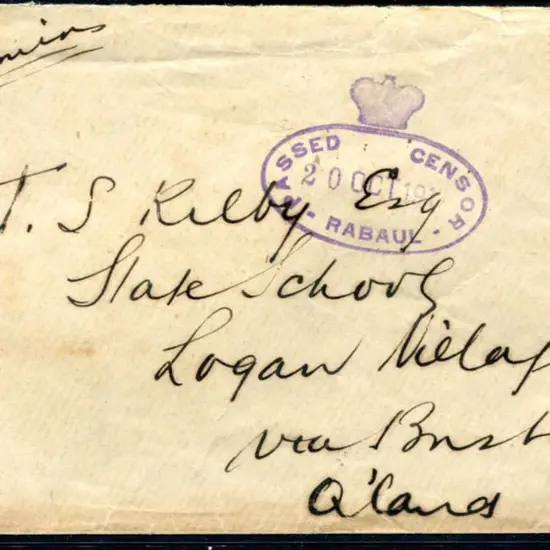 PASSED CENSOR
20 OCT 191
- RABAUL -
T. S Kilby Esq
State School
Logan Villag
via Brisb
Q'land